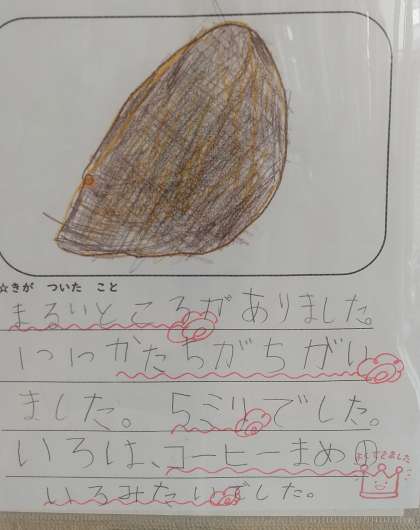 ☆きが ついた こと
まるいところがありました。
1つ1つかたちがちがい
ました。5ミリでした。
いろは、コーヒーまめの
いろみたいでした。
よくできました